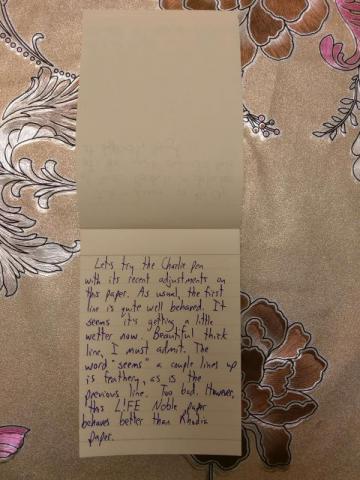 Let's try the Charlie pen
with its recent adjustments on
this paper. As usual, the first
line is quite well behaved. It
seems it's getting a little
wetter now. Beautiful thick
line, I must admit. The
word "seems" a couple lines up
is feathery, as is the
previous line. Too bad. However,
this L!FE Noble paper
behaves better than Rhodia
paper.